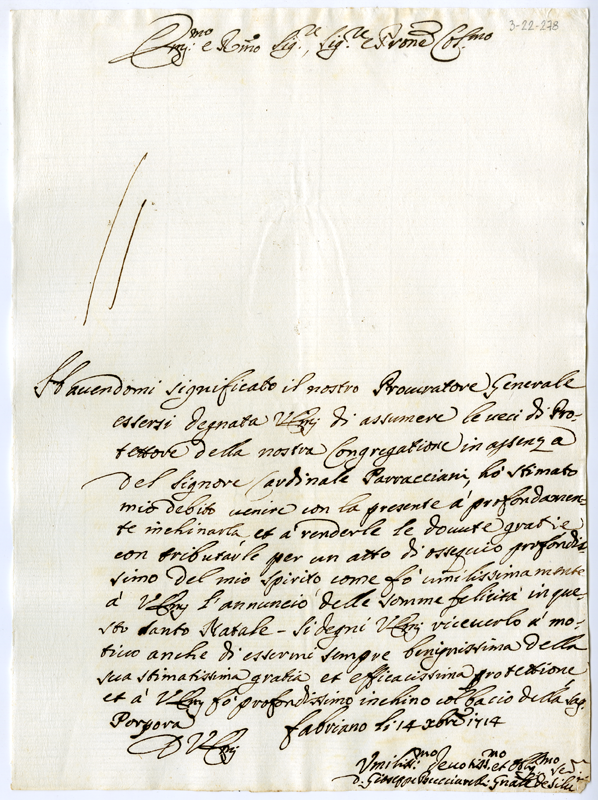 3-22-278
Em.mo e R.mo Sig.re, Sig.re e P'rone Col.mo
Havendomi significato il nostro Procuratore Generale
essersi degnata V. Em. di assumere le veci di Pro-
tettore della nostra Congregatione in assenza
del Signore Cardinale Parracciani, hò stimato
mio debito venire con la presente à profondamen-
te inchinarla, et à renderle le dovute gratie
con tributarle per un atto di ossequio profondis-
simo del mio spirito come fò umilissimamente
à V. Em. l'annuncio delle somme felicità in que-
sto santo Natale - si degni V. Em. riceverlo à mo-
tivo anche di essermi sempre benignissima della
sua stimatissima gratia et efficacissima protettione
et à V. Em. fò profondissimo inchino col bacio della Sag.
Porpora
Fabriano li 14 xbre 1714
D V. Em.
Umiliss.mo Devotiss.mo et Obl.mo
D. Giuseppe Gen.le de Silv.ni